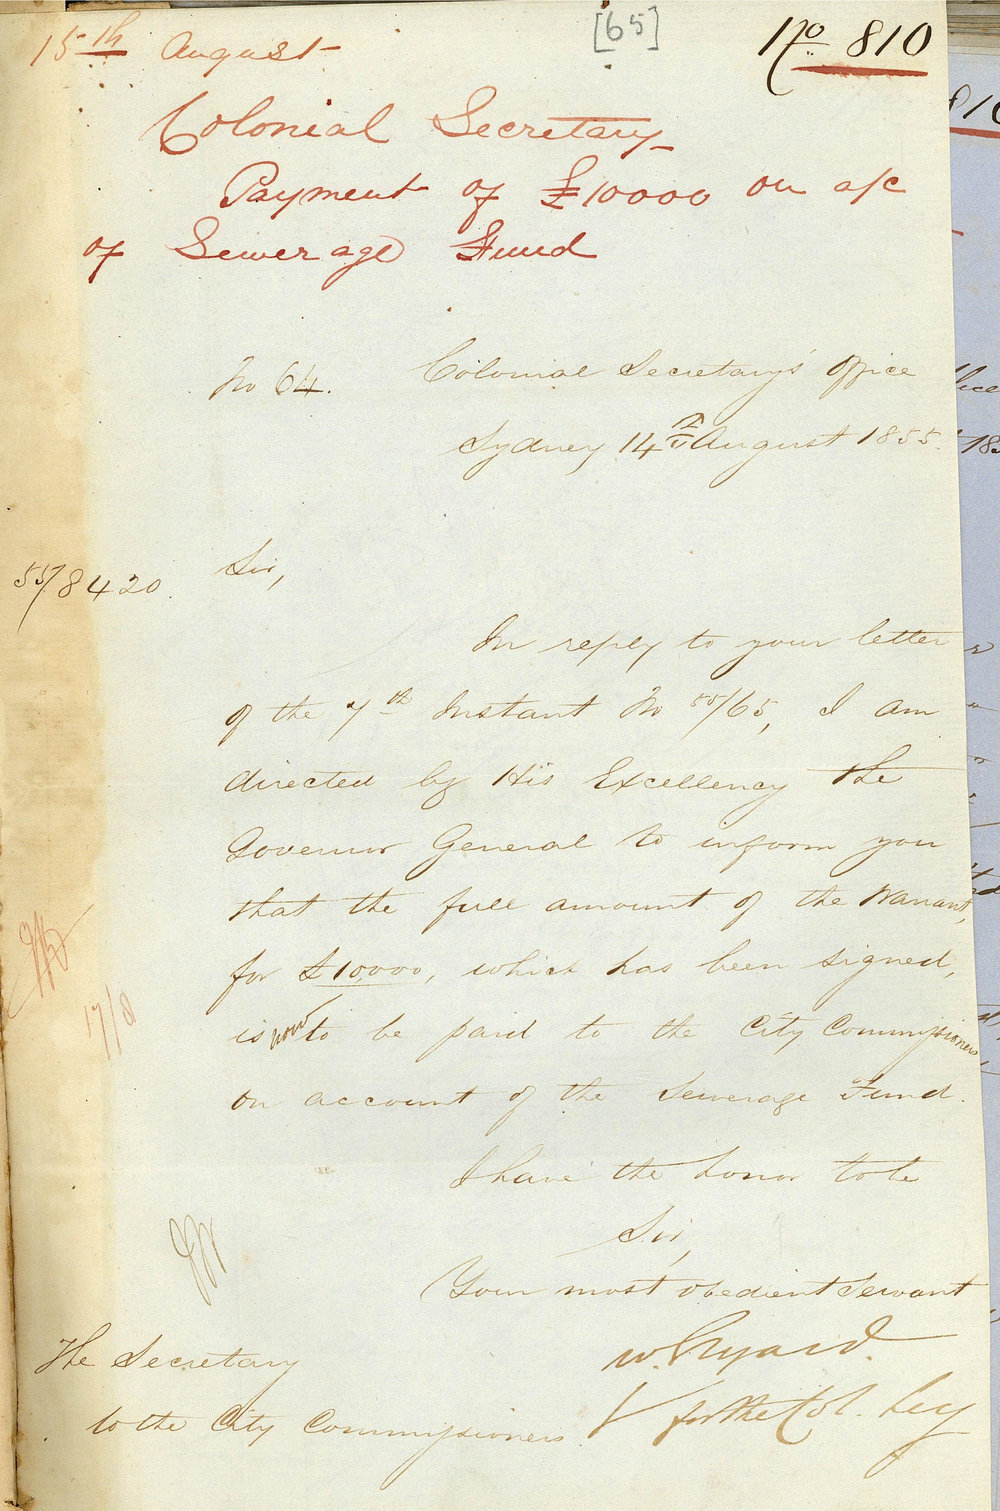 15th August
[65]
No 810
Colonial Secretary
Payment of £10000 on a/c
of Sewerage Fund
No 64.
Colonial Secretary's Office
Sydney 14th August 1855.
55/8420.
Sir,
In reply to your letter
of the 7th Instant No 55/65, I am
directed by His Excellency the
Governor General to inform you
that the full amount of the Warrant,
for £10,000, which has been signed,
is now to be paid to the City Commissioners
on account of the Sewerage Fund.
17/8
I have the honor to be
Sir,
Your most obedient Servant
W.
for the Col. Secy
The Secretary
to the City Commissioners